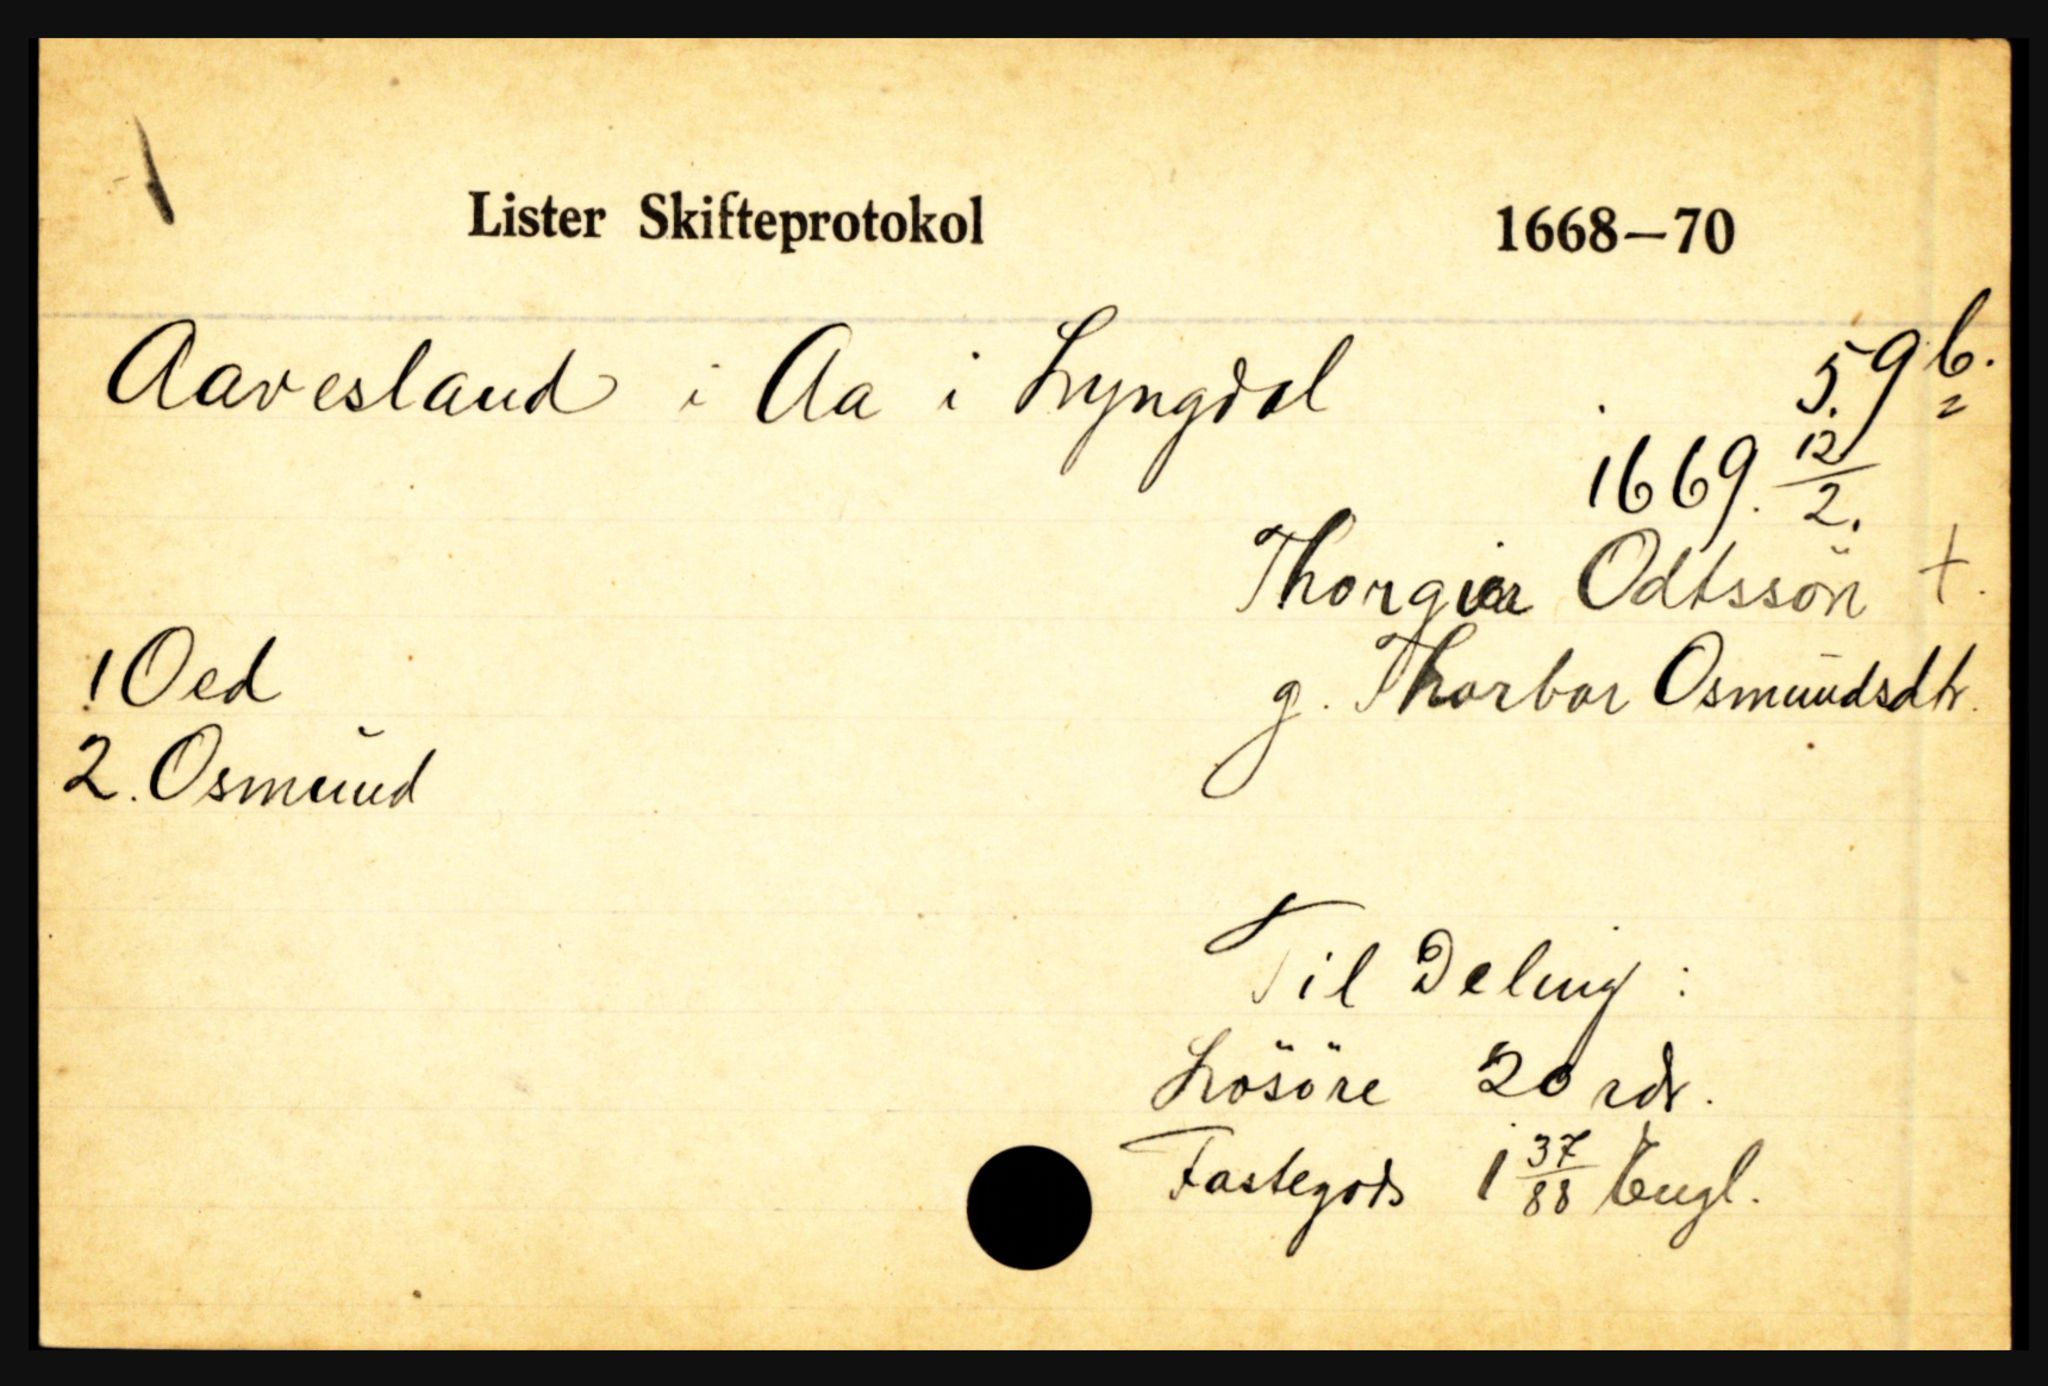 Lister Skifteprotokol 1668—70
Aavesland i Aa i Lyngdal 59 b.
1669. 12/2.
Thorgier Odtssön +.
1 Oed g. Thorbor Osmundsdtr.
2. Osmund
Til Deling :
Lösöre 20 rdr.
Fastegods 1 37/88 Engl.